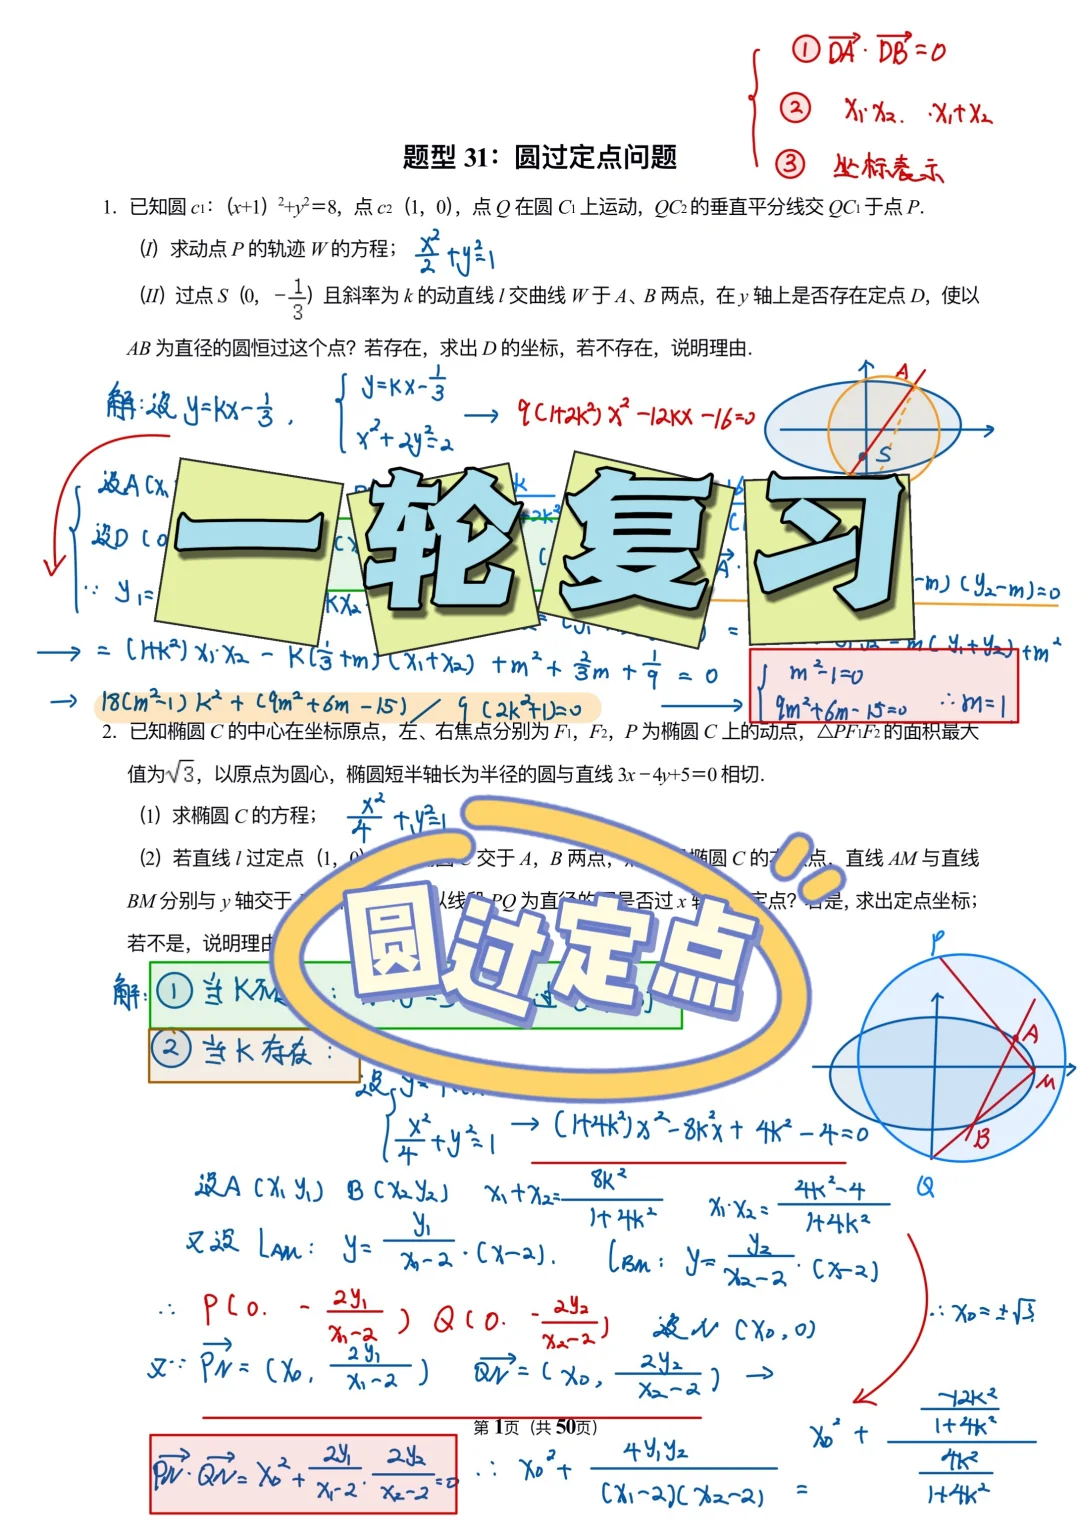 ① DA · DB = 0
② x₁·x₂. ·x₁+x₂
③ 坐标表示
题型 31：圆过定点问题
1．已知圆 c₁：（x+1）²+y²＝8，点 c₂（1，0），点 Q 在圆 C₁ 上运动，QC₂ 的垂直平分线交 QC₁ 于点 P．
（I）求动点 P 的轨迹 W 的方程； x²/2 + y² = 1
（II）过点 S（0，－1/3）且斜率为 k 的动直线 l 交曲线 W 于 A、B 两点，在 y 轴上是否存在定点 D，使以
AB 为直径的圆恒过这个点？若存在，求出 D 的坐标，若不存在，说明理由．
解：设 y=kx-1/3， { y=kx-1/3
x²+2y²=2 → 9(1+2k²)x²-12kx-16=0
A
S
设A(x₁
设D(0
∵ y₁=
-m)(y₂-m)=0
一轮复习
→ = (1+k²)x₁·x₂ - k(1/3+m)(x₁+x₂) + m² + 2/3m + 1/9 = 0
→ 18(m²-1)k² + (9m²+6m-15) / 9(2k²+1)=0 → { m²-1=0
9m²+6m-15=0 ∴m=1
2．已知椭圆 C 的中心在坐标原点，左、右焦点分别为 F₁，F₂，P 为椭圆 C 上的动点，△PF₁F₂ 的面积最大
值为√3，以原点为圆心，椭圆短半轴长为半径的圆与直线 3x－4y+5＝0 相切．
（1）求椭圆 C 的方程； x²/4 + y²=1
（2）若直线 l 过定点（1，0） 交于 A，B 两点， 椭圆 C 的 点，直线 AM 与直线
BM 分别与 y 轴交于 以线段 PQ 为直径的 是否过 x 定点？若是，求出定点坐标；
若不是，说明理由
圆过定点
解：① 当K不
② 当K存在：
P
A
M
B
Q
设 y=
{ x²/4 + y²=1 → (1+4k²)x²-8k²x+4k²-4=0
设A(x₁ y₁) B(x₂ y₂) x₁+x₂= 8k²/1+4k² x₁·x₂= 4k²-4/1+4k²
又设 LAM： y= y₁/x₁-2 ·(x-2)． LBM： y= y₂/x₂-2 ·(x-2)
∴ P(0. - 2y₁/x₁-2) Q(0. - 2y₂/x₂-2) 设N(x₀,0) ∴x₀=±√3
又∵ PN=(x₀, 2y₁/x₁-2) QN=(x₀, 2y₂/x₂-2) →
第 1页（共 50页）
PN·QN= x₀² + 2y₁/x₁-2 · 2y₂/x₂-2 =0 ∴ x₀² + 4y₁y₂/(x₁-2)(x₂-2) = x₀² + -12k²/1+4k² / 4k²/1+4k²